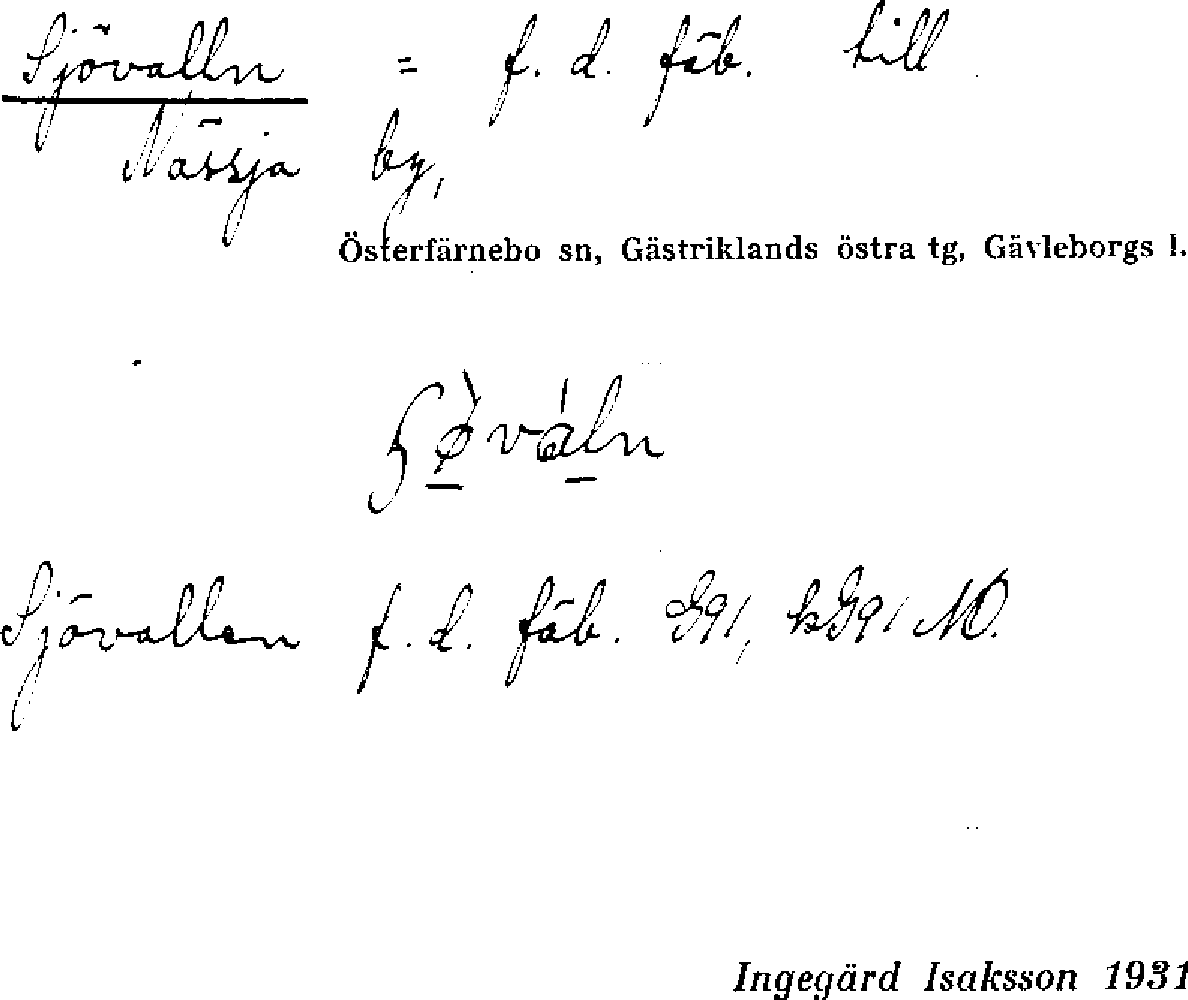 Sjövalln = f. d. fäb. till
Nässja by,
Österfärnebo sn, Gästriklands östra tg, Gävleborgs l.
Sjövallen f. d. fäb. G91, kG91 NO.
Ingegärd Isaksson 1931